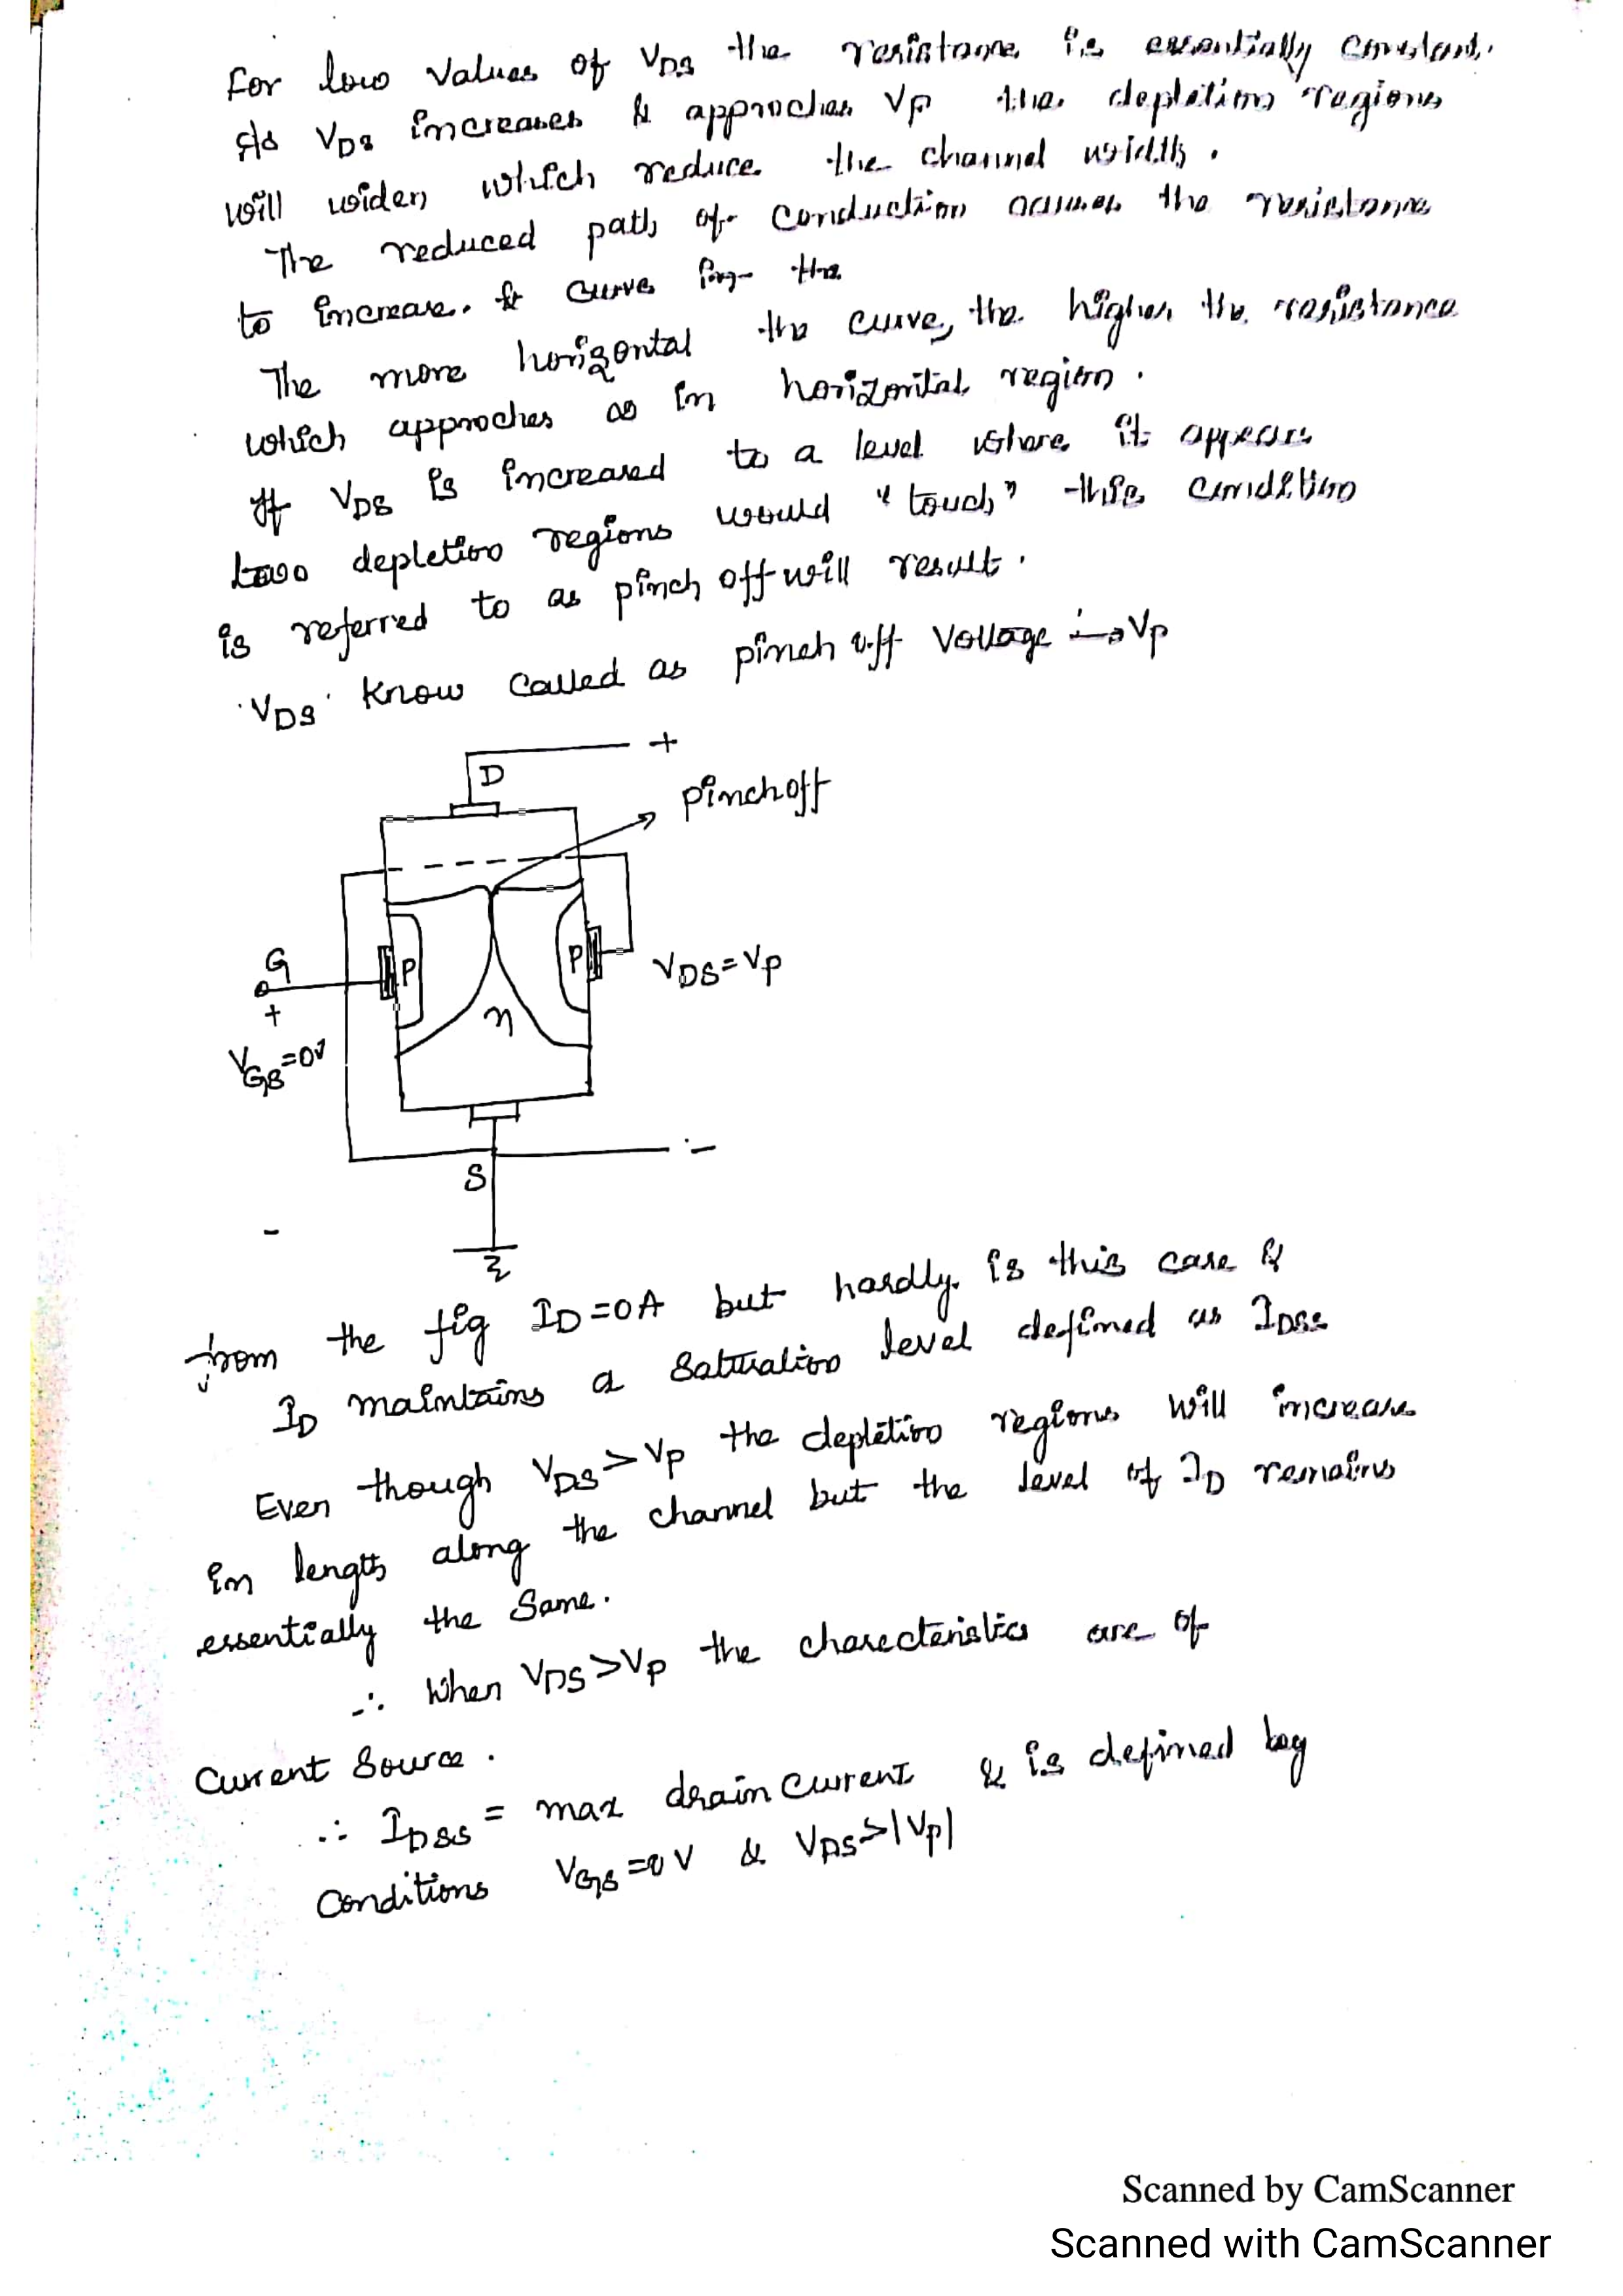 For low values of VDS the resistance is essentially constant.
As VDS increases & approches Vp the depletion regions
will widen which reduce the channel width.
The reduced path of conduction causes the resistance
to increase. & curve for the
The more horizontal the curve, the higher the resistance
which approches as in horizontal region.
If VDS is increased to a level where it appears
two depletion regions would "touch" this condition
is referred to as pinch off will result.
VDS know called as pinch off Voltage → Vp
D +
Pinch off
G
+
P
P
n
VDS=Vp
VGS=0V
-
S
-
from the fig ID=0A but hardly is this case &
ID maintains a Saturation level defined as IDSS
Even though VDS>Vp the depletion regions will increase
in length along the channel but the level of ID remains
essentially the Same.
∴ When VDS>Vp the charecteristics are of
Current Source.
∴ IDSS = max drain current & is defined by
Conditions VGS=0V & VDS>|Vp|
Scanned by CamScanner
Scanned with CamScanner